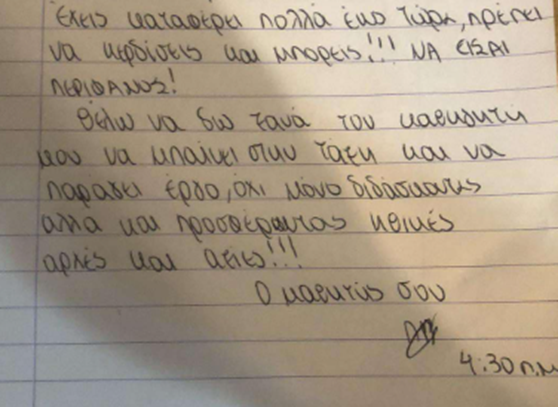 Έχεις καταφέρει πολλά έως τώρα, πρέπει
να κερδίσεις και μπορείς!!! ΝΑ ΕΙΣΑΙ
ΠΕΡΙΦΑΝΟΣ!
Θέλω να δω ξανά τον καθηγητή
μου να μπαίνει στην τάξη και να
παράγει έργο, όχι μόνο διδάσκοντας
αλλά και προσφέροντας ηθικές
αρχές και αξίες!!!
Ο μαθητής σου
4:30 π.μ